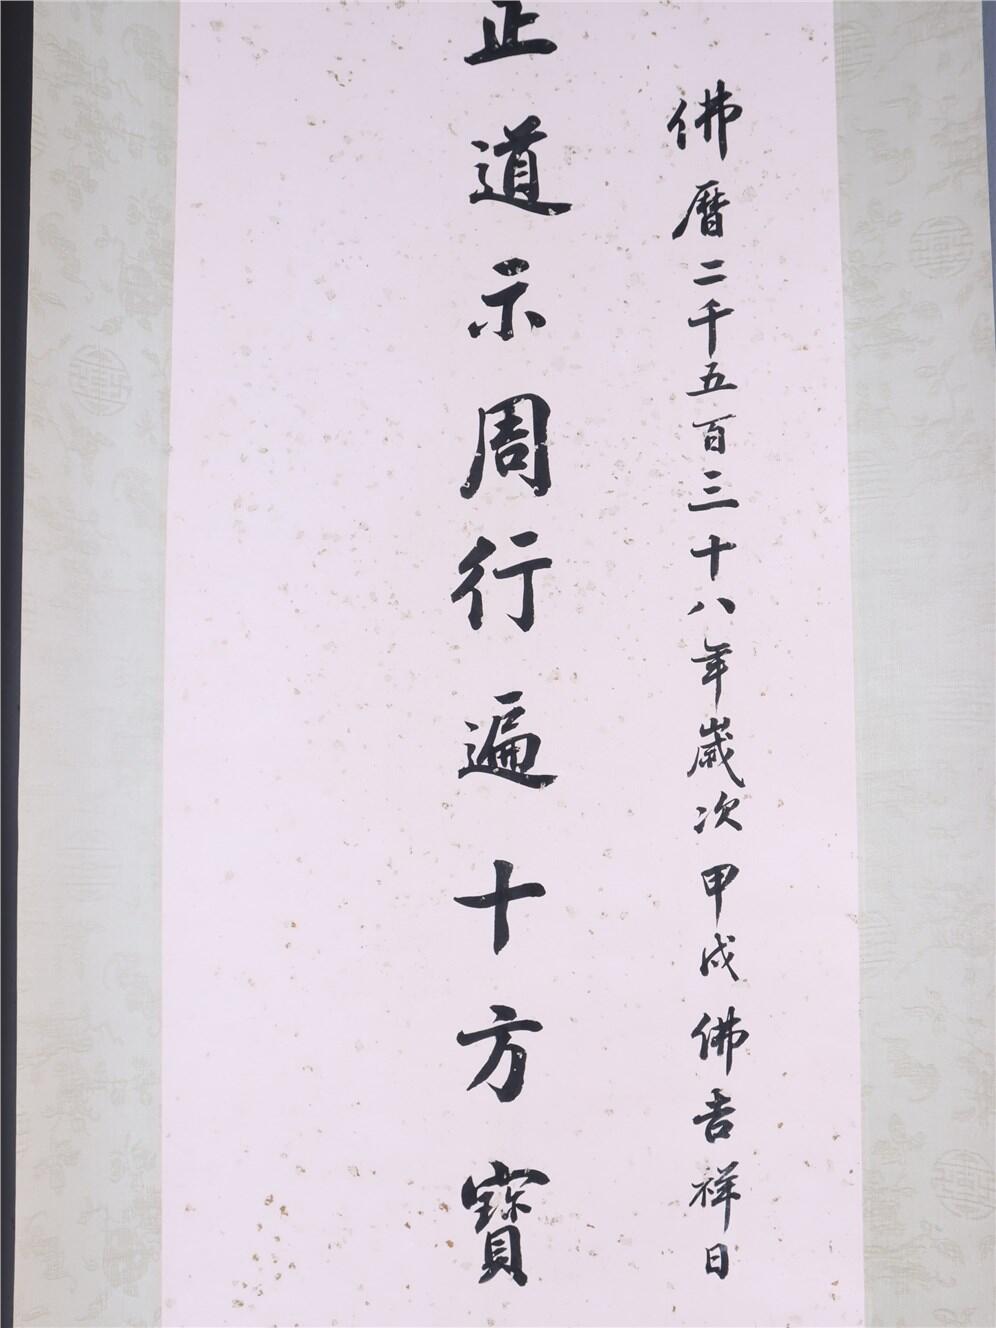 佛曆二千五百三十八年歲次甲戌佛吉祥日
正道示周行遍十方寶